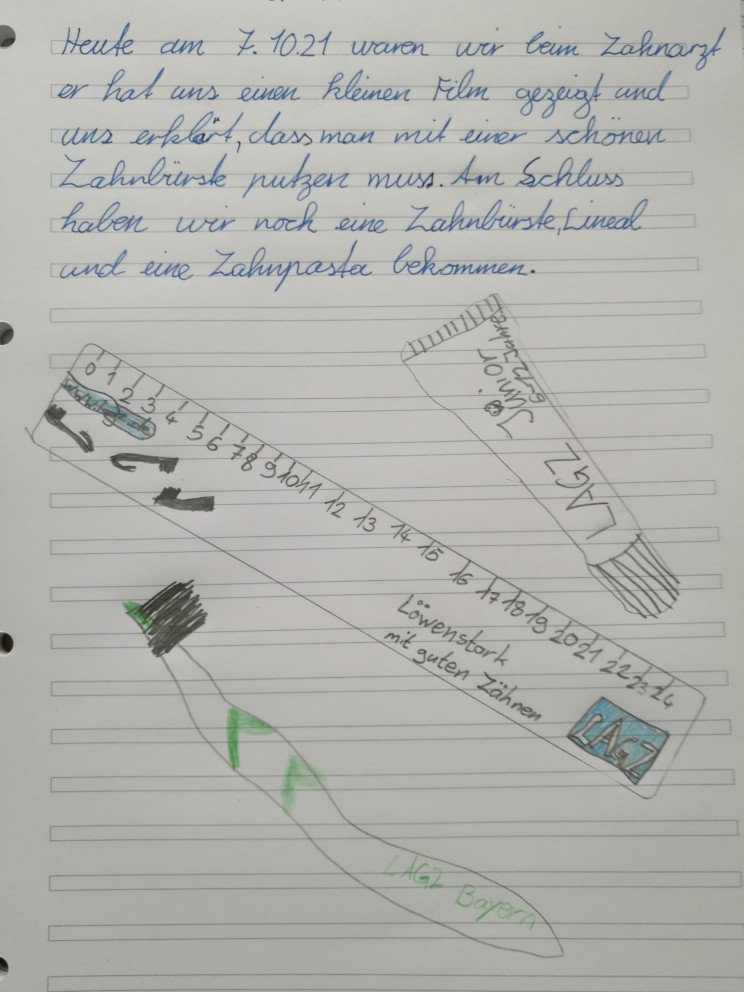 Heute am 7.10.21 waren wir beim Zahnarzt
er hat uns einen kleinen Film gezeigt und
uns erklärt, dass man mit einer schönen
Zahnbürste putzen muss. Am Schluss
haben wir noch eine Zahnbürste, Lineal
und eine Zahnpasta bekommen.
Junior
6-12 Jahre
LAGZ
0 1 2 3 4 5 6 7 8 9 10 11 12 13 14 15 16 17 18 19 20 21 22 23 24
Löwenstark
mit guten Zähnen
LAGZ
LAGZ Bayern